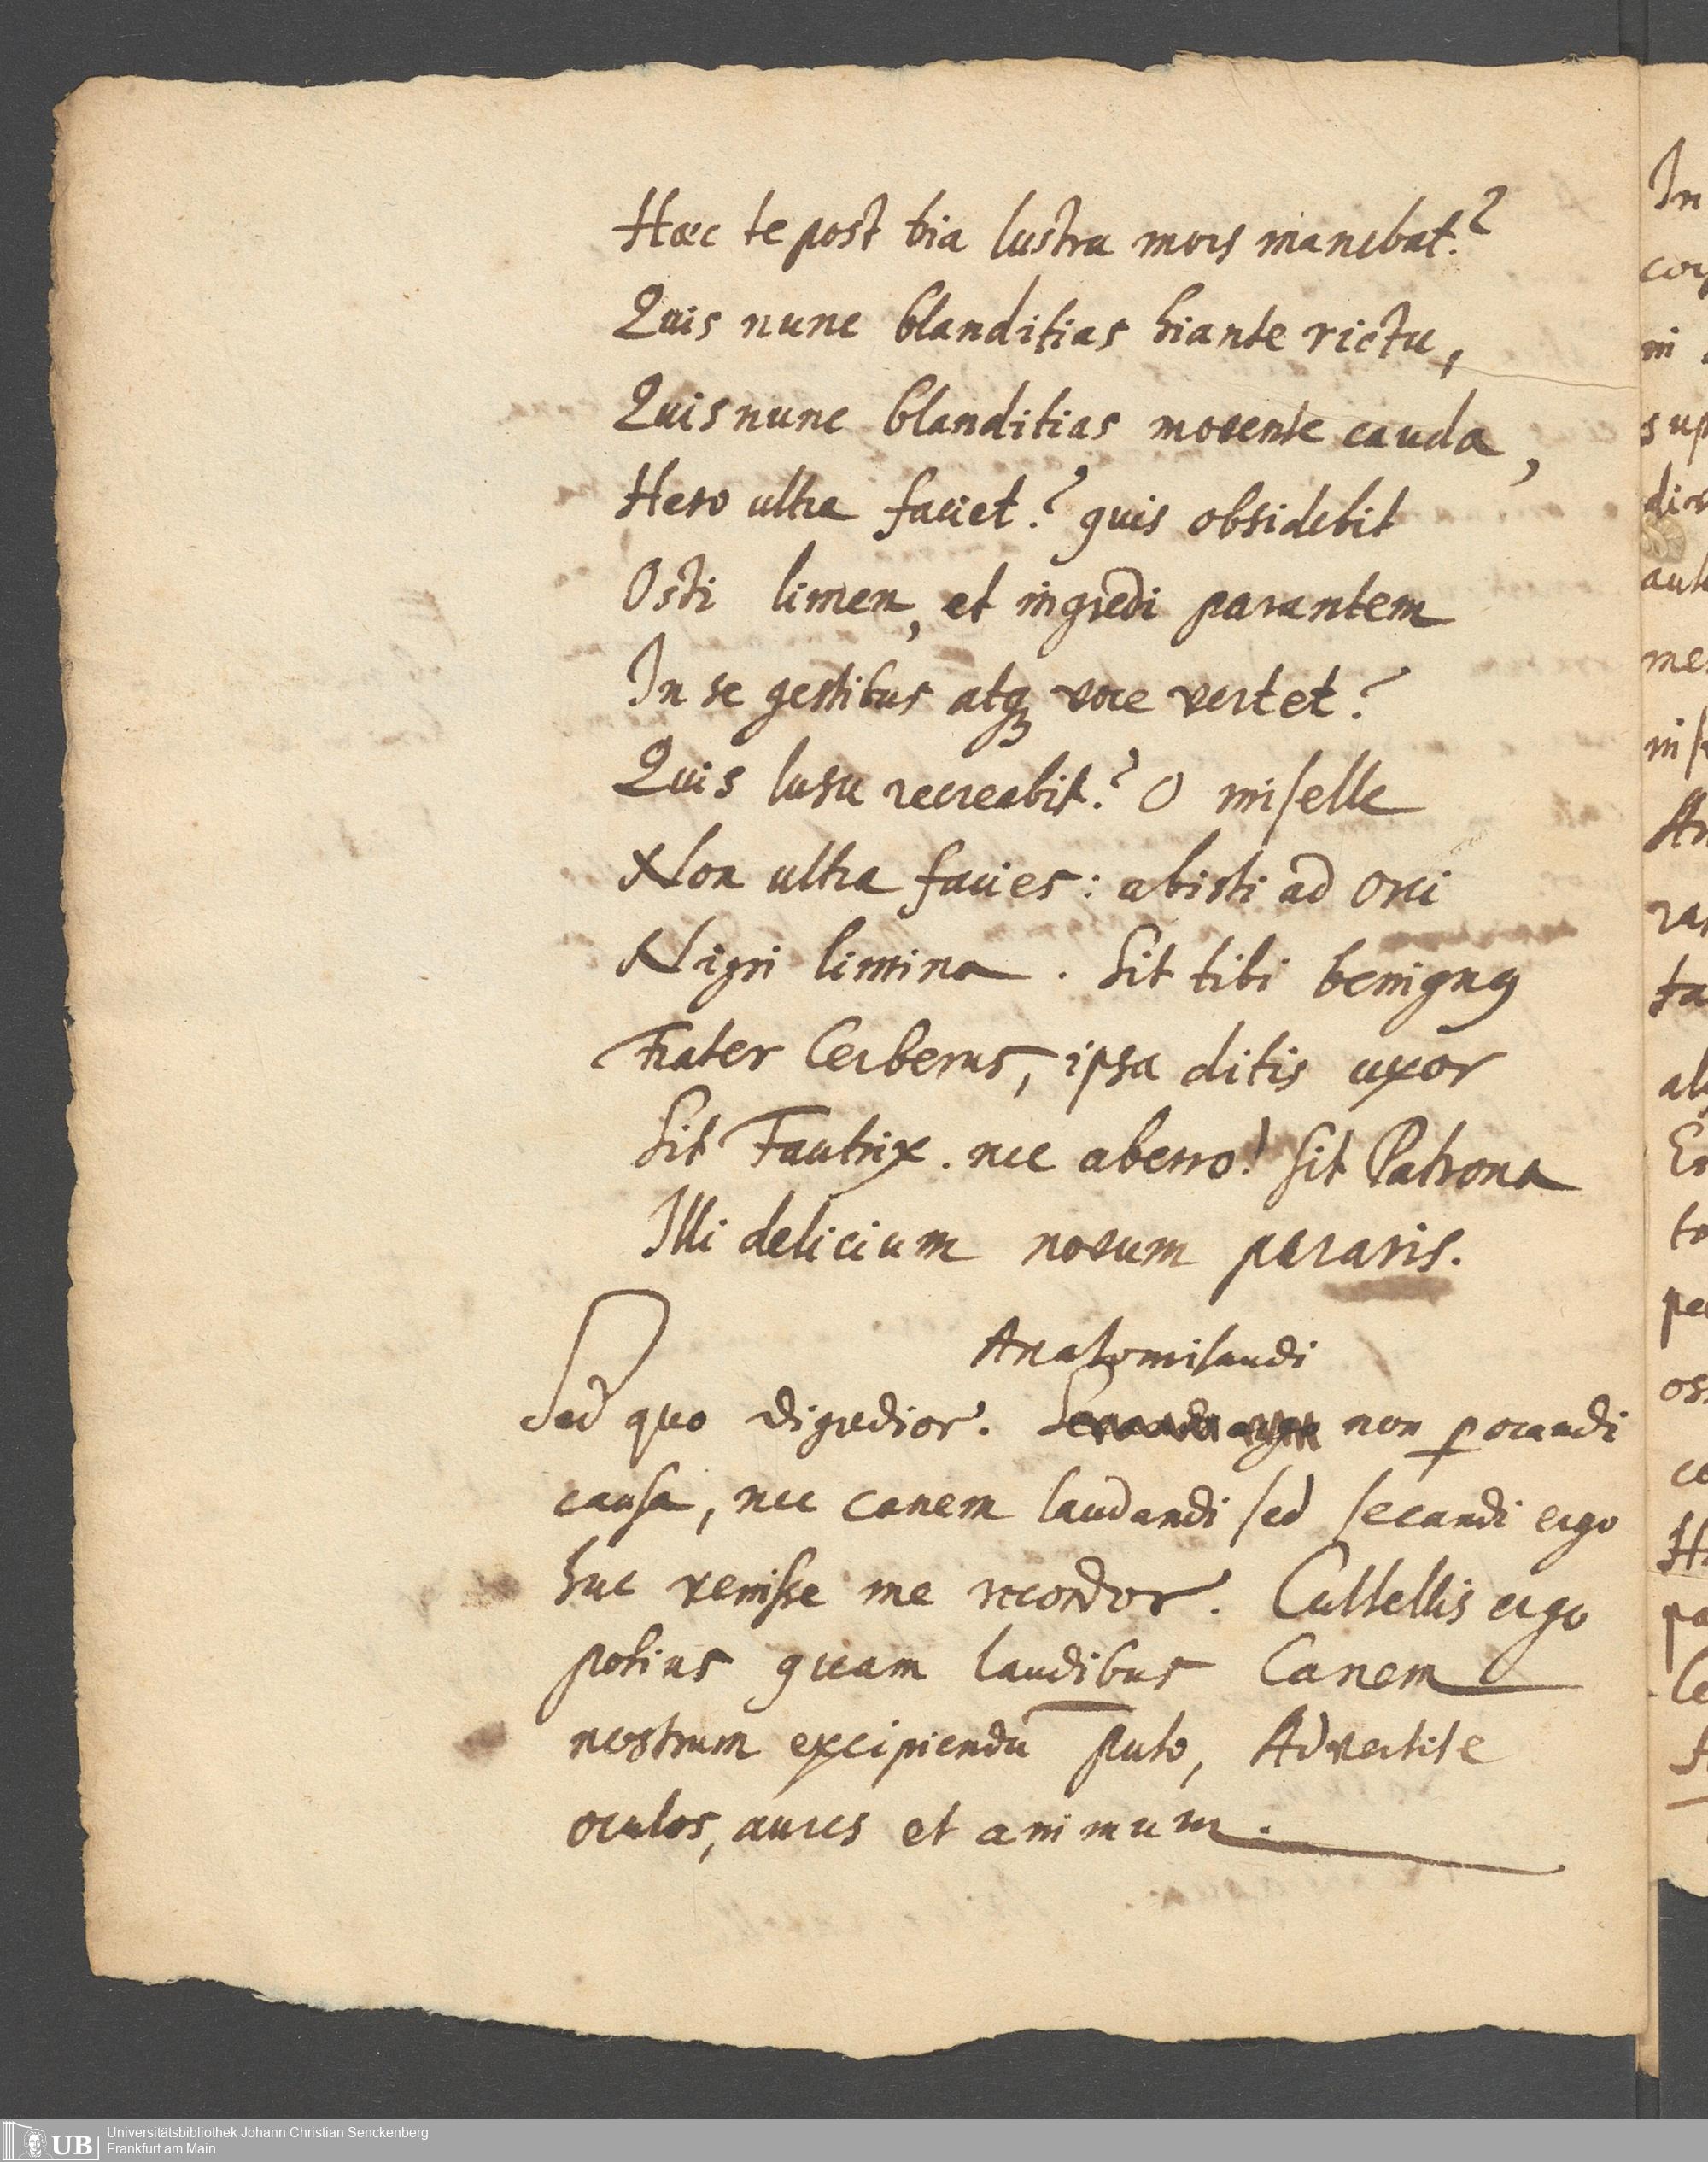 Hæc te post tria lustra mors manebat?
Quis nunc blanditias hiante rictu,
Quis nunc blanditias movente cauda,
Hero ultra faciet? quis obsidebit
Osti limen, et ingredi parantem
In se gestibus atq voce vertet?
Quis lusu recreabit? O miselle
Non ultra facies: abisti ad Orci
Nigri limina. Sit tibi benignq
Frater Cerberus, ipsa ditis uxor
Sit Fautrix. nec aberro! Sit Patrona
Illi delicium novum pararis.
Anatomisandi
Sed quo digredior. non porandi
causa, nec canem laudandi sed secandi ergo
huc venisse me recordor. Cultellis ergo
potius quam laudibus Canem
nostrum excipiendū puto, Advertite
oculos, aures et animum.
In
cor
in
sup
aut
me
ta
pe
UB
Universitätsbibliothek Johann Christian Senckenberg
Frankfurt am Main